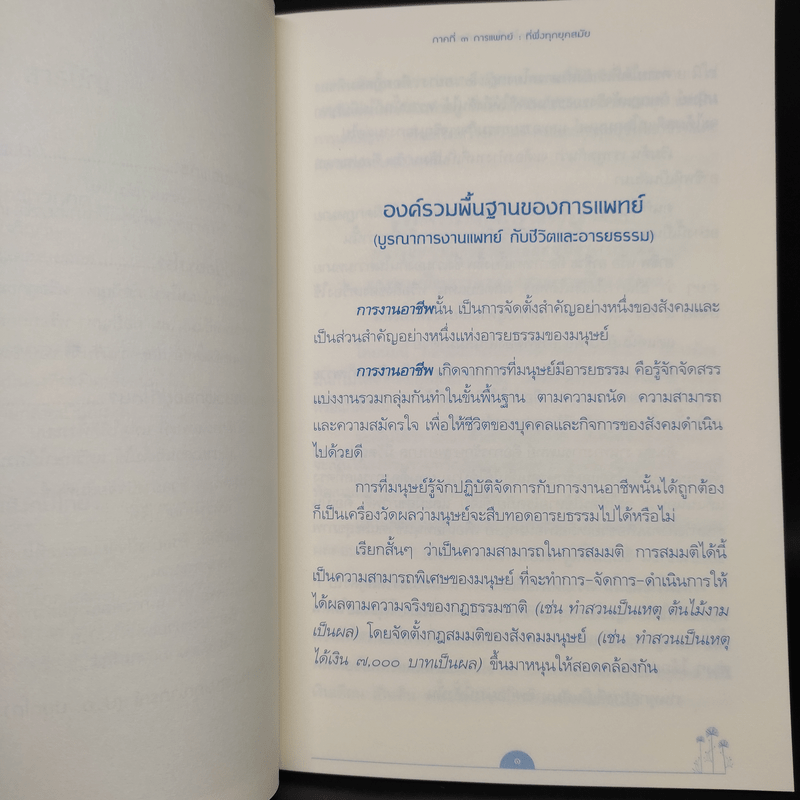 ภาคที่ ๓ การแพทย์ : ที่พึ่งทุกยุคสมัย
องค์รวมพื้นฐานของการแพทย์
(บูรณาการงานแพทย์ กับชีวิตและอารยธรรม)
การงานอาชีพนั้น เป็นการจัดตั้งสำคัญอย่างหนึ่งของสังคมและ
เป็นส่วนสำคัญอย่างหนึ่งแห่งอารยธรรมของมนุษย์
การงานอาชีพ เกิดจากการที่มนุษย์มีอารยธรรม คือรู้จักจัดสรร
แบ่งงานรวมกลุ่มกันทำในขั้นพื้นฐาน ตามความถนัด ความสามารถ
และความสมัครใจ เพื่อให้ชีวิตของบุคคลและกิจการของสังคมดำเนิน
ไปด้วยดี
การที่มนุษย์รู้จักปฏิบัติจัดการกับการงานอาชีพนั้นได้ถูกต้อง
ก็เป็นเครื่องวัดผลว่ามนุษย์จะสืบทอดอารยธรรมไปได้หรือไม่
เรียกสั้นๆ ว่าเป็นความสามารถในการสมมติ การสมมติได้นี้
เป็นความสามารถพิเศษของมนุษย์ ที่จะทำการ-จัดการ-ดำเนินการให้
ได้ผลตามความจริงของกฎธรรมชาติ (เช่น ทำสวนเป็นเหตุ ต้นไม้งาม
เป็นผล) โดยจัดตั้งกฎสมมติของสังคมมนุษย์ (เช่น ทำสวนเป็นเหตุ
ได้เงิน ๗,๐๐๐ บาทเป็นผล) ขึ้นมาหนุนให้สอดคล้องกัน
๑